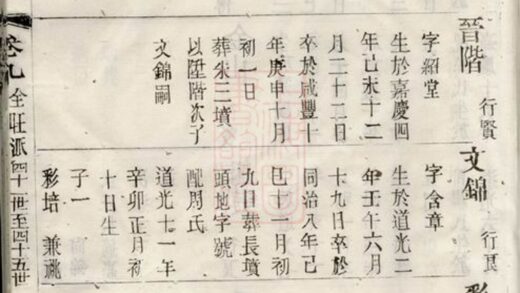 晉階 行賢
字紹堂
生於嘉慶四
年己未十二
月二十二日
卒於咸豐十
年庚申十月
初一日
葬朱三墳
以陞階次子
文錦嗣
文錦 行良
字含章
生於道光二
年壬午六月
十九日卒於
同治八年己
巳十一月初
九日葬長墳
頭地字號
配周氏
道光十一年
辛卯正月初
十日生
子一
彩培 兼祧
卷九 全旺派四十一世至四十五世